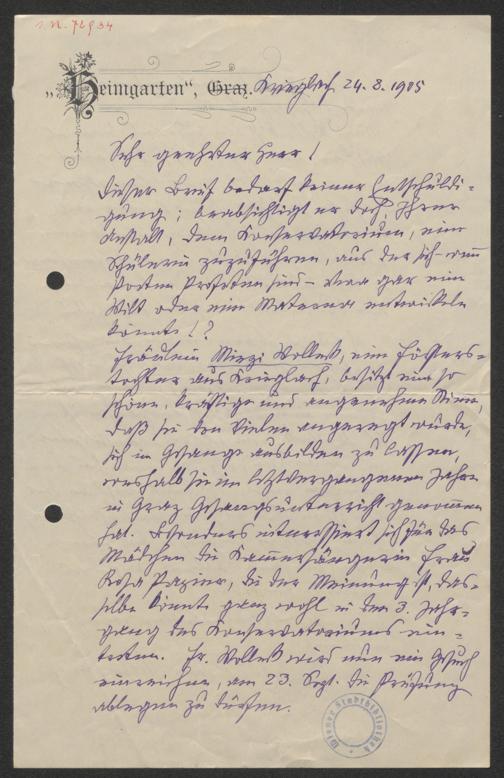 I. N. 72934
"Heimgarten", Graz. Krieglach, 24. 8. 1905
Sehr geehrter Herr!
Dieser Brief bedarf keiner Entschuldi-
gung; beabsichtigt er doch Ihrer
Anstalt, dem Konservatorium, eine
Schülerin zuzuführen, aus der sich - wenn
Poeten Profeten sind - etwa gar eine
Wilt oder eine Materna entwickeln
könnte!?
Fräulein Mirzi Wolleß, eine Försters-
tochter aus Krieglach, besitzt eine so
schöne, kräftige und angenehme Stimme,
daß sie von Vielen angeregt wurde,
sich im Gesange ausbilden zu lassen,
weshalb sie im letztvergangenen Jahre
in Graz Gesangsunterricht genommen
hat. Besonders interessiert sich für das
Mädchen die Kammersängerin Frau
Rosa Papier, die der Meinung ist, das-
selbe könnte ganz wohl in den 3. Jahr-
gang des Konservatoriums ein-
treten. Fr. Wolleß wird nun ein Gesuch
einreichen, am 23. Sept. die Prüfung
ablegen zu dürfen.
Wiener Stadtbibliothek